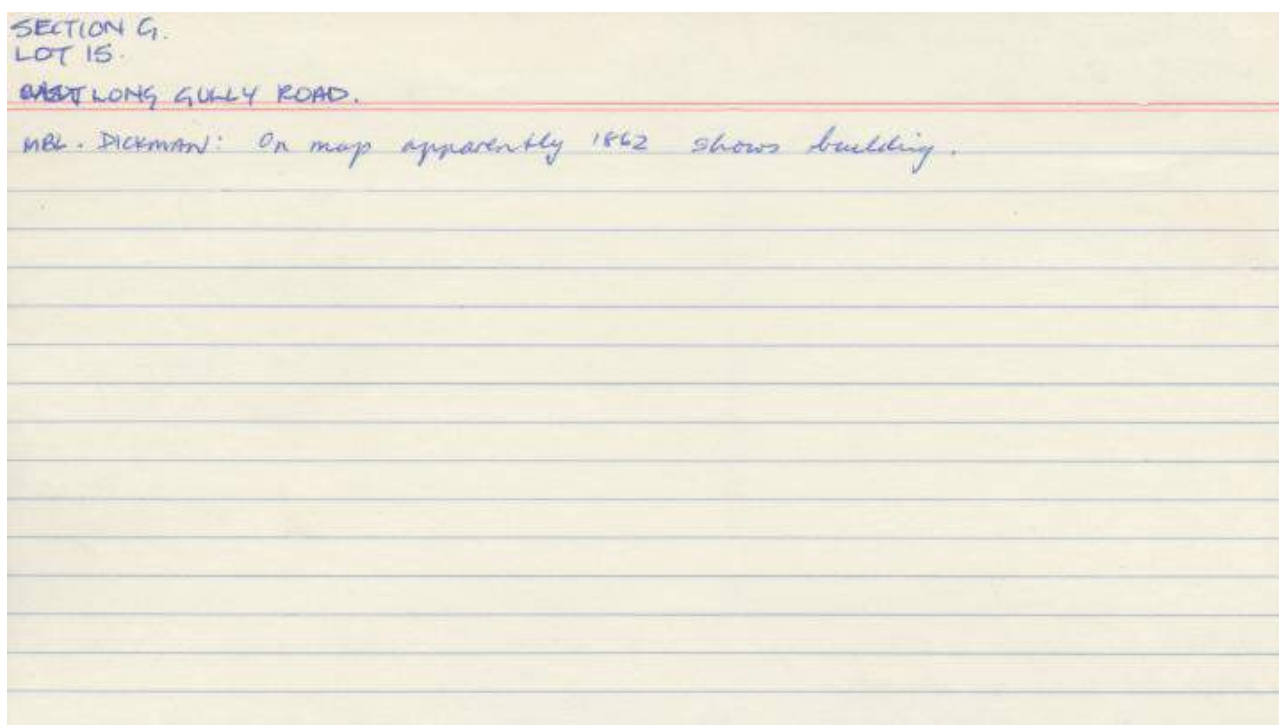 SECTION G.
LOT 15.
LONG GULLY ROAD.
MBL. DICKMAN: On map apparently 1862 shows building.